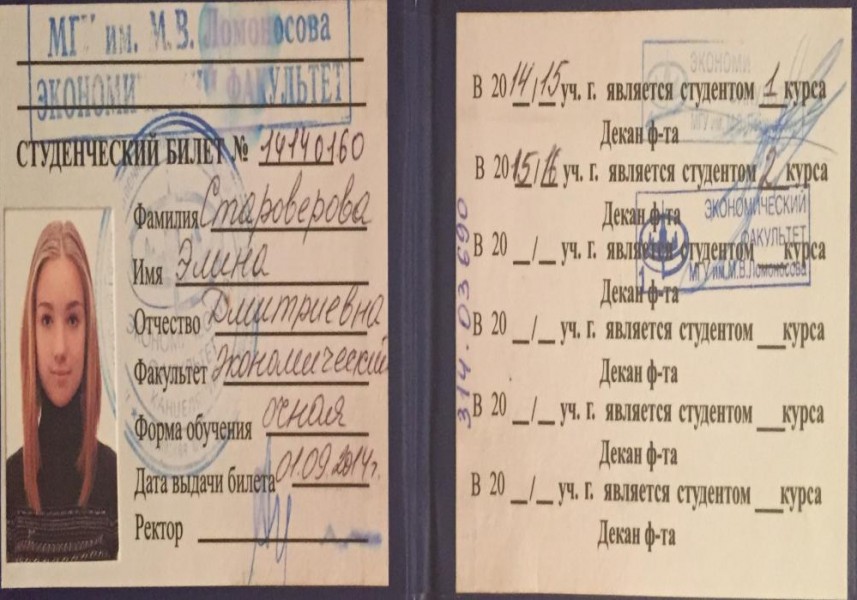 МГУ им. М.В. Ломоносова
ЭКОНОМИЧЕСКИЙ ФАКУЛЬТЕТ
СТУДЕНЧЕСКИЙ БИЛЕТ № 14140160
Фамилия Староверова
Имя Элина
Отчество Дмитриевна
Факультет Экономический
Форма обучения очная
Дата выдачи билета 01.09.2014г.
Ректор
314.03690
В 2014/15 уч. г. является студентом 1 курса
Декан ф-та
В 2015/16 уч. г. является студентом 2 курса
Декан ф-та
В 20__/__ уч. г. является студентом __ курса
Декан ф-та
В 20__/__ уч. г. является студентом __ курса
Декан ф-та
В 20__/__ уч. г. является студентом __ курса
Декан ф-та
В 20__/__ уч. г. является студентом __ курса
Декан ф-та
ЭКОНОМИЧЕСКИЙ
ФАКУЛЬТЕТ
МГУ им. М.В.Ломоносова